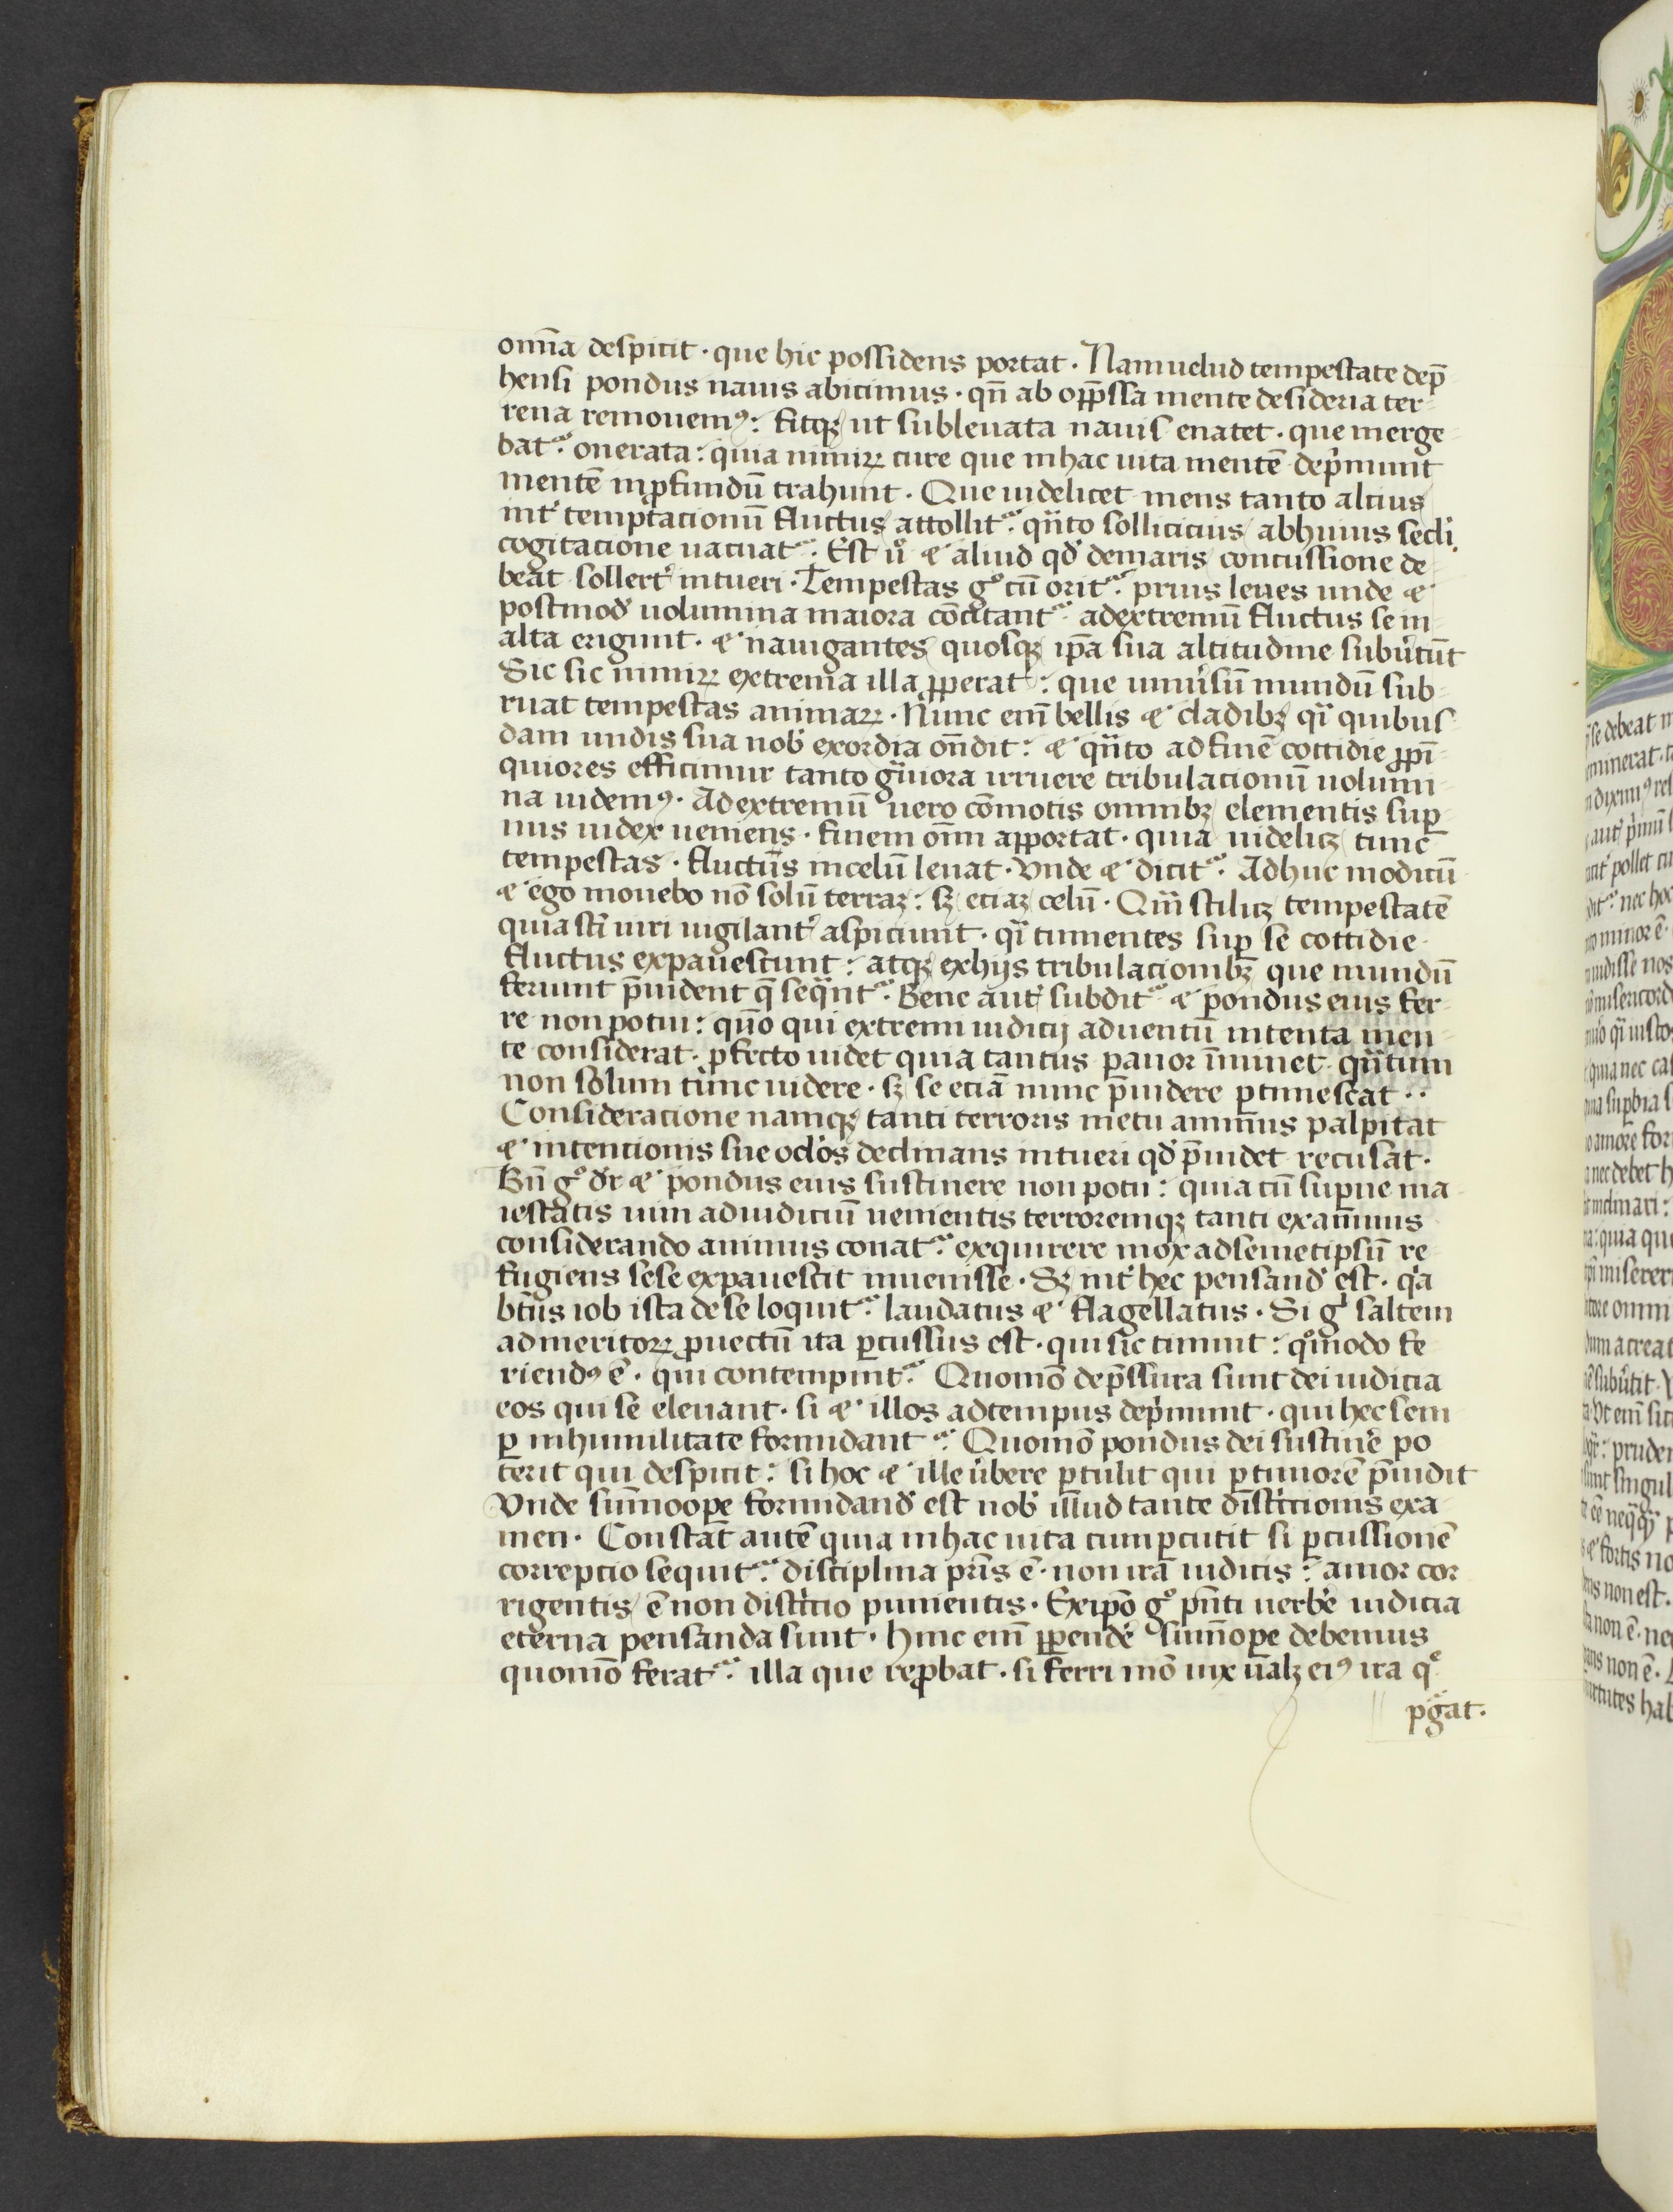 om̄a despicit · que hic possidens portat · Nam uelud tempestate dep̄
hensi pondus nauis abicimus · qn̄ ab opp̄ssa mente desideria ter
rena remouemꝰ : fitqꝫ ut subleuata nauis enatet · que merge
bat᷑ onerata : quia nimiꝝ cure que in hac uita mentē dep̍munt
mentē in ꝓfundū trahunt · Que uidelicet mens tanto altius
int̉ temptacionū fluctus attollit᷑ · qᷓnto sollicitius ab huius sc̄li
cogitacione uacuat᷑ · Est uͦ ⁊ aliud qd̛ de maris concussione de
beat sollert̉ intueri · Tempestas gͦ cū orit᷑ · prius leues unde ⁊
postmod̛ uolumina maiora cōcitant᷑ · ad extremū fluctus se in
alta erigunt · ⁊ nauigantes quosqꝫ ip̄a sua altitudine subu̓tūt
Sic sic nimiꝝ extrema illa ꝓperat : que uniu̓sū mundū sub
ruat tempestas animaꝝ · Nunc em̄ bellis ⁊ cladibꝫ qᷓi quibus
dam undis sua nob̛ exordia on̄dit : ⁊ qᷓnto ad finē cottidie ꝓpī
quiores efficimur tanto gᷓuiora irruere tribulacionū uolumi
na uidemꝰ · Ad extremū uero cōmotis omnibꝫ elementis suꝑ
nus iudex ueniens · finem om̄i apportat · quia uidelicꝫ tunc
tempestas · fluctus in celū leuat · Vnde ⁊ dicit᷑ · Adhuc modicū
⁊ ego mouebo nō solū terraꝫ : sꝫ eciaꝫ celū · Qᷓm scilicꝫ tempestatē
quia sc̄i uiri uigilant̉ aspiciunt · qᷓi tumentes suꝑ se cottidie
fluctus expauescunt : atqꝫ ex hijs tribulacionibꝫ que mundū
feriunt p̄uident q̄ seqᷓnt᷑ · Bene aut̛ subdit᷑ ⁊ pondus eius fer
re non potui : qm̄o qui extremi iudicij aduentū intenta men
te considerat · ꝓfecto uidet quia tantus pauor īminet · qᷓntum
non solum tunc uidere · sꝫ se eciā nunc p̄uidere ꝑtimescat · ·
Consideracione namqꝫ tanti terroris metu animus palpitat
⁊ intencionis sue oc̛los declinans intueri qd̛ p̄uidet recusat ·
Bn̄ gͦ dr̄ ⁊ pondus eius sustinere non potui : quia cū suꝑne ma
iestatis uim ad iudiciū uenientis terroremqꝫ tanti examinis
considerando animus conat᷑ exquirere mox ad semetipsū re
fugiens sese expauescit inuenisse · Sꝫ int̉ hec pensand̛ est · qͥa
btūs iob ista de se loquit᷑ laudatus ⁊ flagellatus · Si gͦ saltem
ad meritoꝝ ꝓuectū ita ꝑcussus est · qui sic timuit : qͦmodo fe
riendꝰ ē · qui contempnit᷑ Quomō dep̄ssura sunt dei iudicia
eos qui se eleuant · si ⁊ illos ad tempus dep̍munt · qui hec sem
ꝑ in humilitate formidant᷑ Quomō pondus dei sustine̓ po
terit qui despicit : si hoc ⁊ ille u̓bere ꝑtulit qui ꝑ timorē p̄uidit
Vnde sum̄oope formidand̛ est nob̛ illud tante distͥctionis exa
men · Constat autē quia in hac uita cum ꝑcutit si ꝑcussionē
correpcio sequit᷑ disciplina pr̄is ē · non ira iudicis : amor cor
rigentis ē non distͥctio punientis · Ex ip̄o gͦ pn̄ti uerbe̓ iudicia
eterna pensanda sunt · hinc em̄ ꝑpende̓ sum̄ope debemus
quomō ferat᷑ illa que reꝓbat · si ferri mō uix ualꝫ eiꝰ ira qͤ
pgᷓat ·